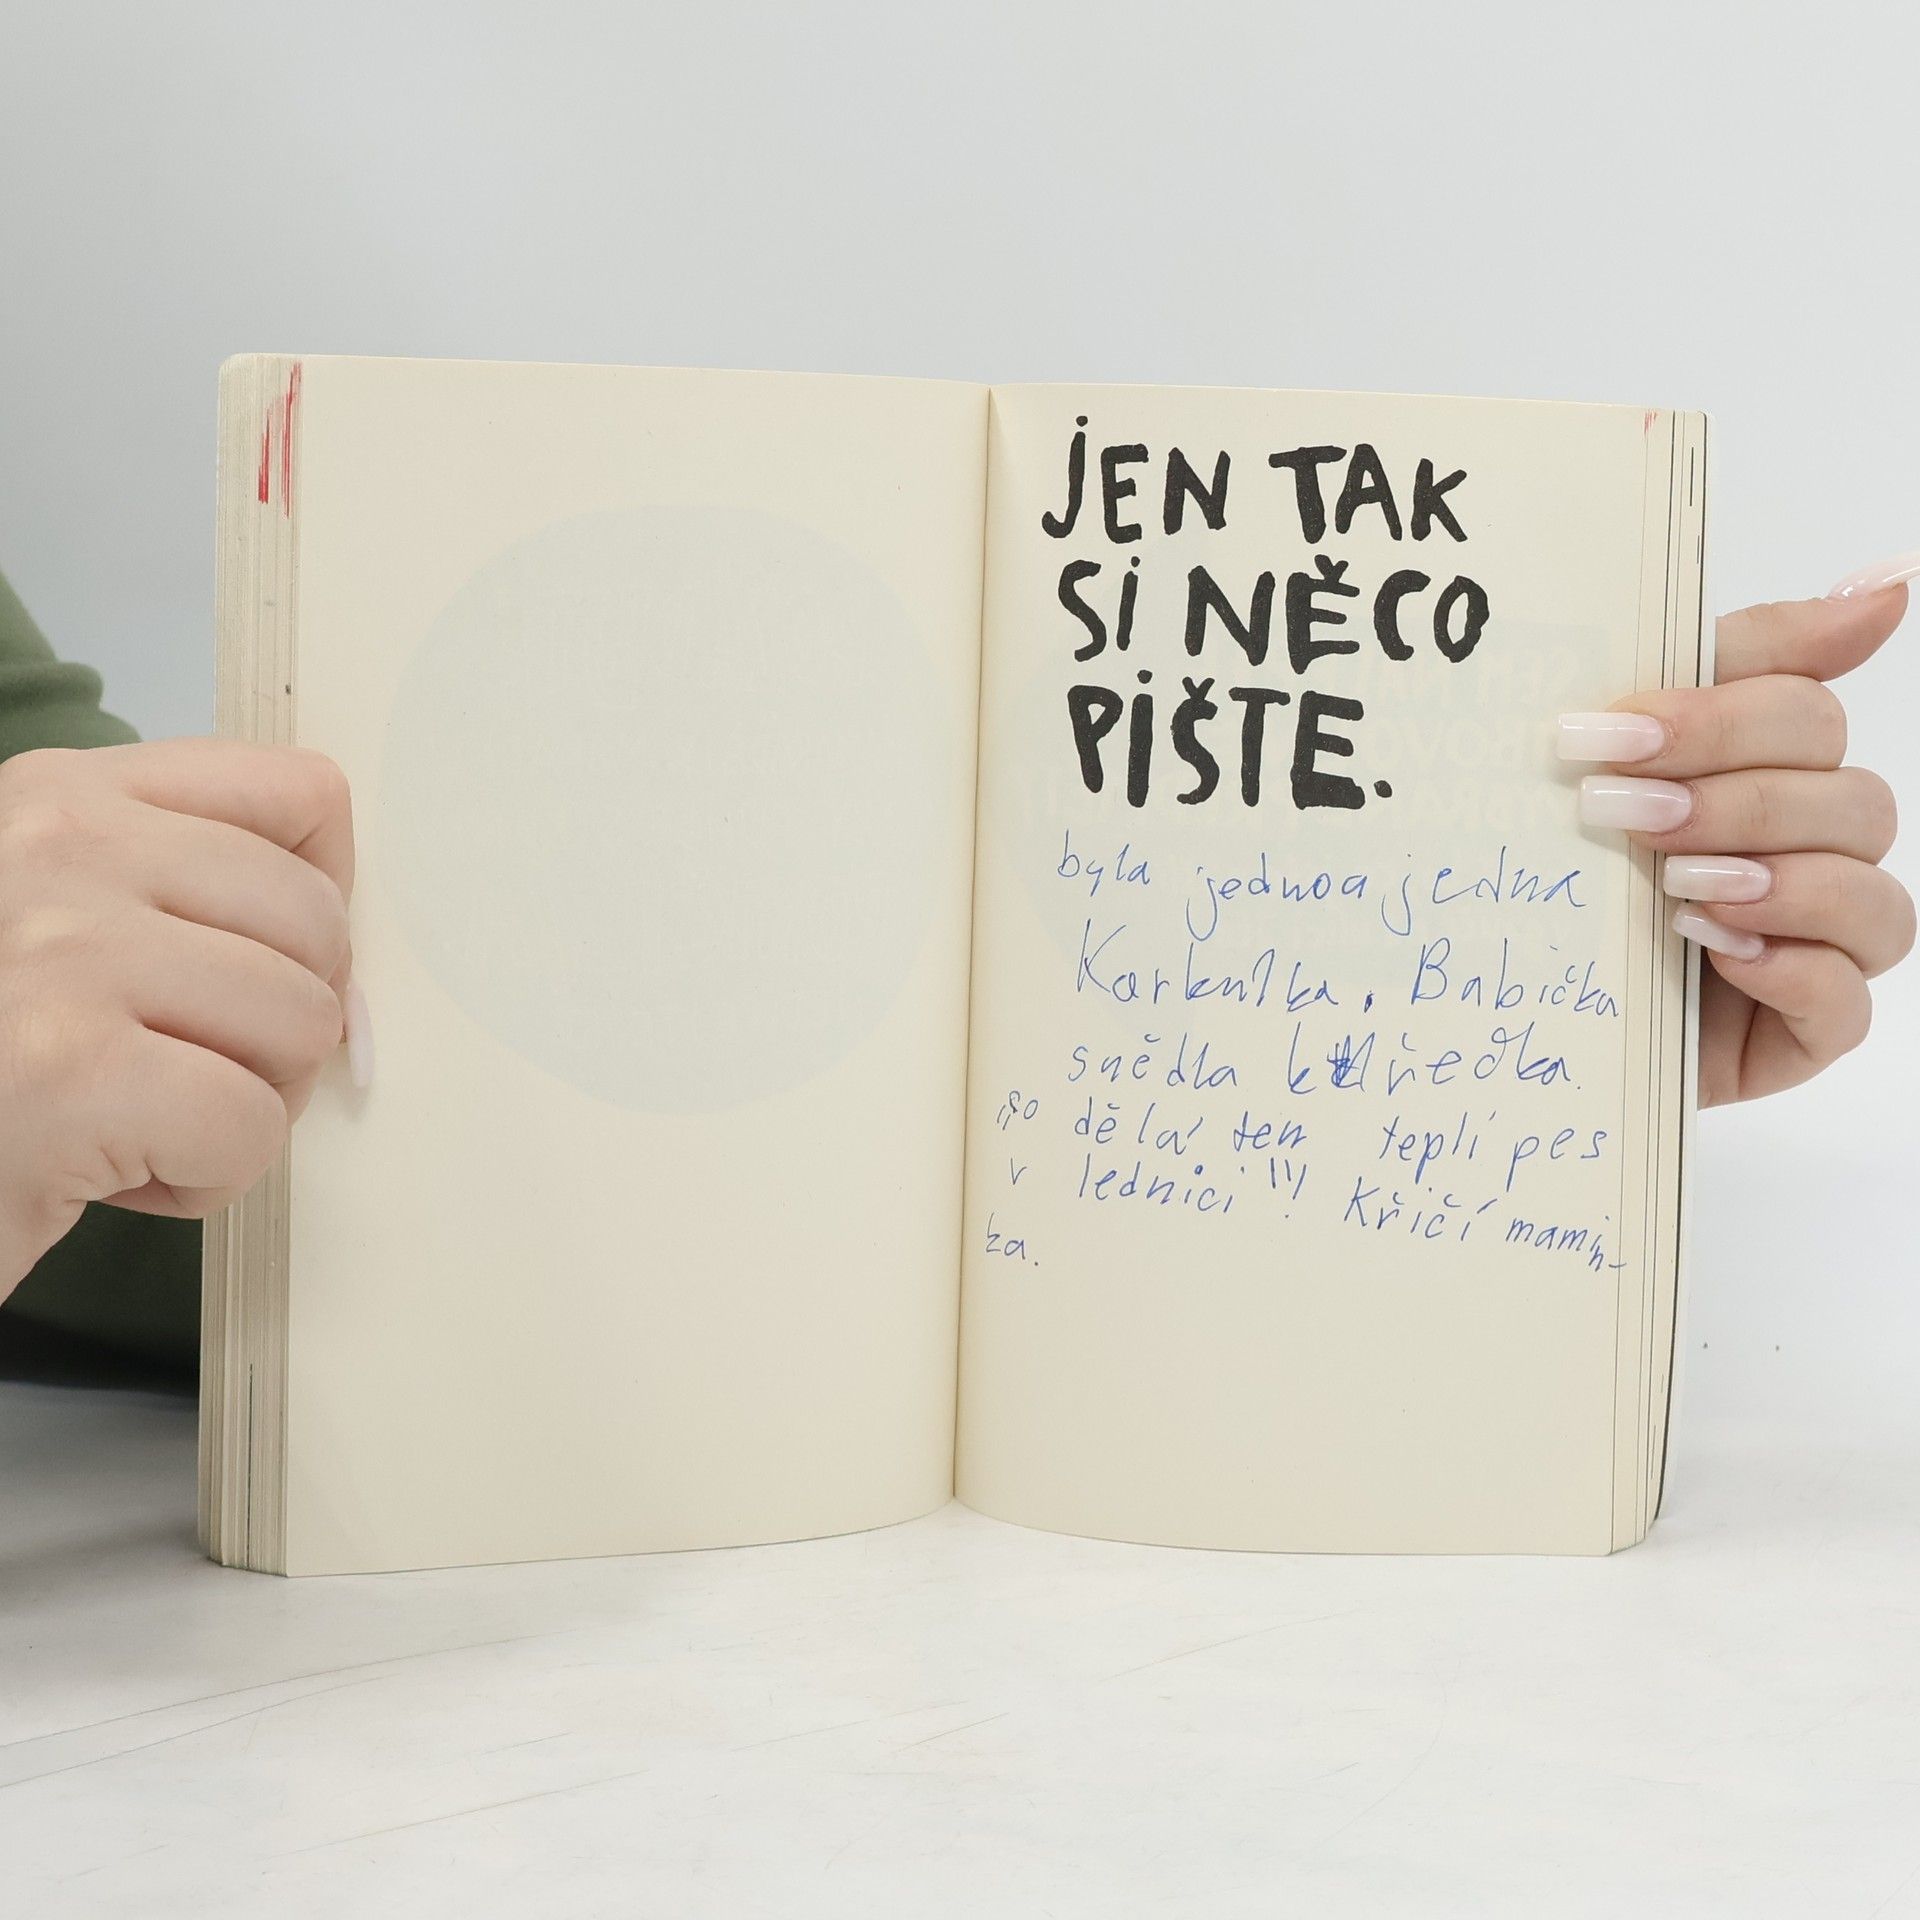 JEN TAK
Si NĚCO
PiŠTE.
byla jednoa jedna
Karkulka. Babička
snědla ředka.
dělá ten teplí pes
v lednici!!! Křičí mamin-
ka.